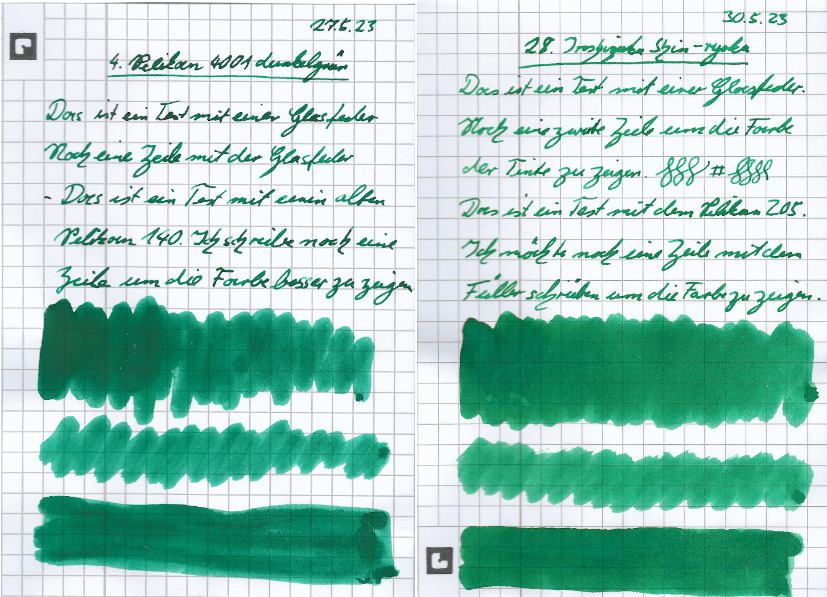 27.5.23
4. Pelikan 4001 dunkelgrün
Das ist ein Test mit einer Glasfeder
Noch eine Zeile mit der Glasfeder
- Das ist ein Test mit einem alten
Pelikan 140. Ich schreibe noch eine
Zeile um die Farbe besser zu zeigen
30.5.23
28. Iroshizuku Shin-ryoku
Das ist ein Test mit einer Glasfeder.
Noch eine zweite Zeile um die Farbe
der Tinte zu zeigen. #
Das ist ein Test mit dem Pelikan 205.
Ich möchte noch eine Zeile mit dem
Füller schreiben um die Farbe zu zeigen.